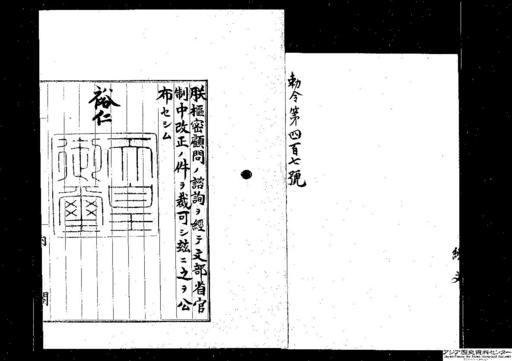 勅令第四百七號
朕樞密顧問ノ諮詢ヲ經テ文部省官
制中改正ノ件ヲ裁可シ茲ニ之ヲ公
布セシム
裕仁
天皇
御璽
内
閣
アジア歴史資料センター